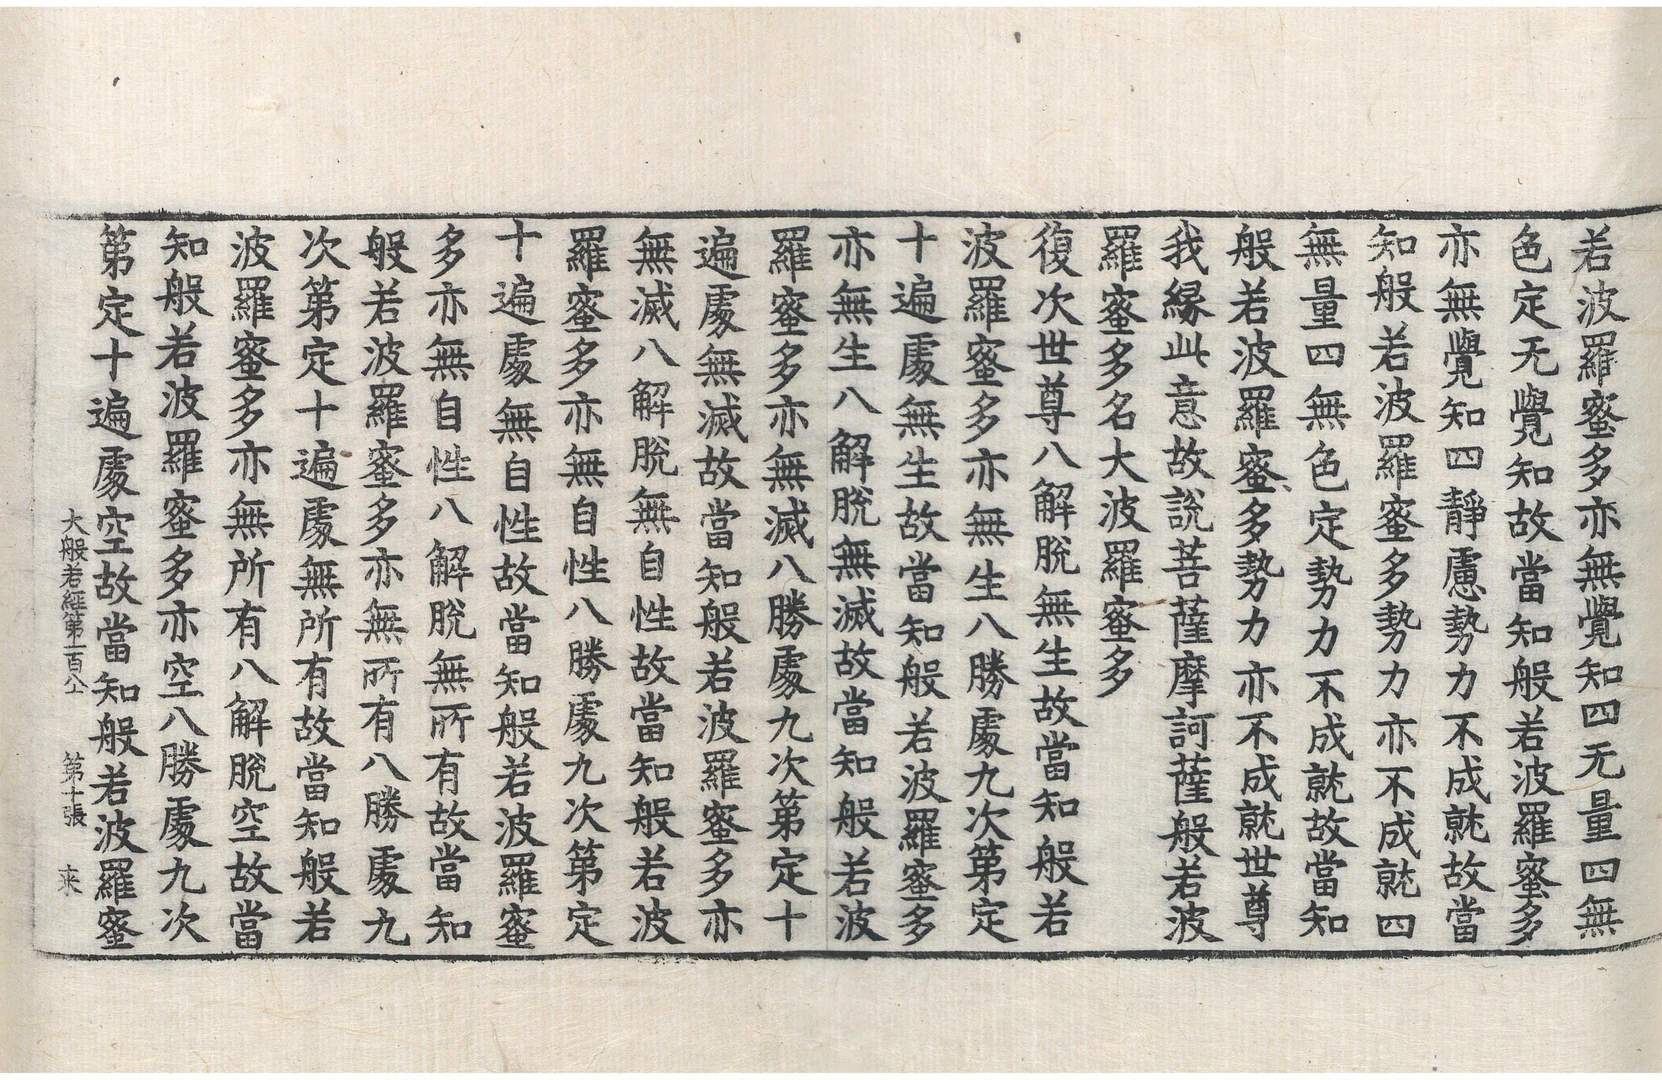 若波羅蜜多亦無覺知四无量四無
色定无覺知故當知般若波羅蜜多
亦無覺知四靜慮勢力不成就故當
知般若波羅蜜多勢力亦不成就四
無量四無色定勢力不成就故當知
般若波羅蜜多勢力亦不成就世尊
我緣此意故說菩薩摩訶薩般若波
羅蜜多名大波羅蜜多
復次世尊八解脫無生故當知般若
波羅蜜多亦無生八勝處九次第定
十遍處無生故當知般若波羅蜜多
亦無生八解脫無滅故當知般若波
羅蜜多亦無滅八勝處九次第定十
遍處無滅故當知般若波羅蜜多亦
無滅八解脫無自性故當知般若波
羅蜜多亦無自性八勝處九次第定
十遍處無自性故當知般若波羅蜜
多亦無自性八解脫無所有故當知
般若波羅蜜多亦無所有八勝處九
次第定十遍處無所有故當知般若
波羅蜜多亦無所有八解脫空故當
知般若波羅蜜多亦空八勝處九次
第定十遍處空故當知般若波羅蜜
大般若經第一百八十 第十張 来